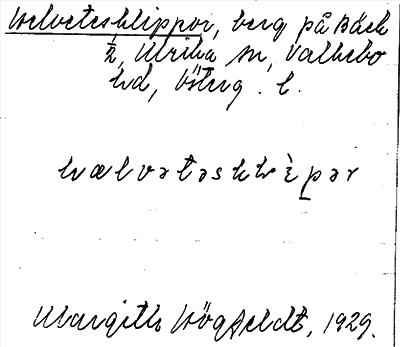 Helvetesklippor, berg på Bäck
½, Ulrika sn, Valkebo
hd, Österg. l.
hælvətəsklìpər
Margith Högfeldt, 1929.